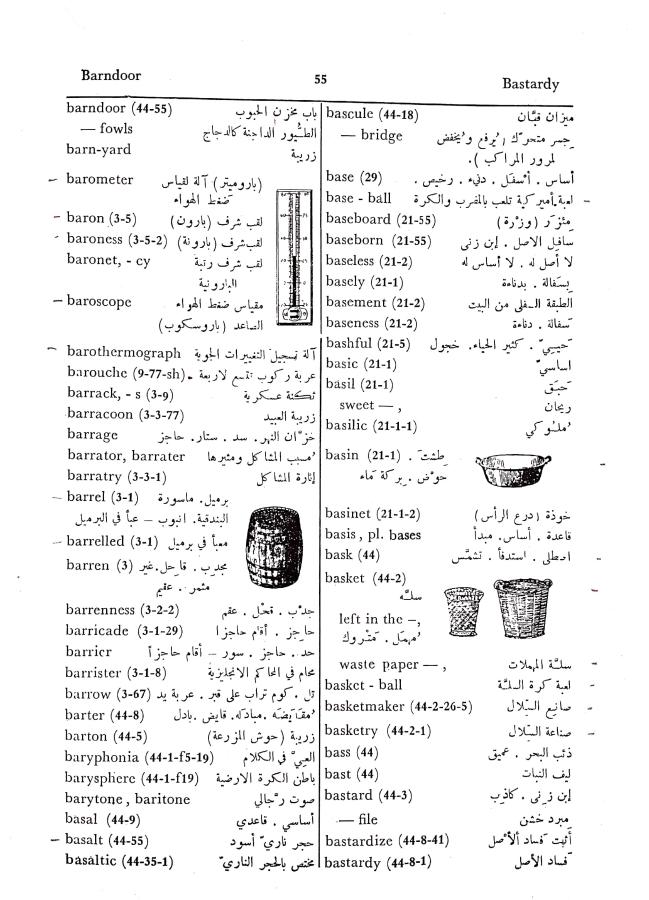 Barndoor
55
Bastardy
barndoor (44-55) باب مخزن الحبوب
— fowls الطيور الداجنة كالدجاج
barn-yard زريبة
— barometer (باروميتر) آلة لقياس
ضغط الهواء
– baron (3-5) لقب شرف (بارون)
- baroness (3-5-2) لقب شرف (بارونة)
baronet, - cy لقب شرف رتبة
البارونية
– baroscope مقياس ضغط الهواء
الصاعد (باروسكوب)
– barothermograph آلة تسجيل التغييرات الجوية
barouche (9-77-sh) عربة ركوب تتسع لاربعة .
barrack, - s (3-9) ثكنة عسكرية
barracoon (3-3-77) زريبة العبيد
barrage خزّان النهر . سد . ستار . حاجز
barrator, barrater مُسبب المشاكل ومثيرها
barratry (3-3-1) إثارة المشاكل
– barrel (3-1) برميل . ماسورة
البندقية . انبوب – عبأ في البرميل
– barrelled (3-1) معبأ في برميل
barren (3) مجدب . قاحل . غير
مثمر . عقيم
barrenness (3-2-2) جدْب . قحل . عقم
barricade (3-1-29) حاجز . أقام حاجزا
barrier حد . حاجز . سور – أقام حاجزاً
barrister (3-1-8) محام في المحاكم الانجليزية
barrow (3-67) تل . كوم تراب على قبر . عربة يد
barter (44-8) مُقايضه . مبادله . قايض . بادل
barton (44-5) زريبة (حوش المزرعة)
baryphonia (44-1-f5-19) العيّ في الكلام
barysphere (44-1-f19) باطن الكرة الارضية
barytone, baritone صوت رجالي
basal (44-9) أساسي . قاعدي
– basalt (44-55) حجر ناريّ أسود
basaltic (44-35-1) مختص بالحجر الناريّ
bascule (44-18) ميزان قبّان
— bridge جسر متحرّك (يُرفع ويُخفض
لمرور المراكب).
base (29) أساس . أسفل . دنيء . رخيص .
base - ball لعبة أميركية تلعب بالمضرب والكرة –
baseboard (21-55) مئزر (وزرة)
baseborn (21-55) سافل الاصل . إبن زنى
baseless (21-2) لا أصل له . لا أساس له
basely (21-1) بسفالة . بدناءة
basement (21-2) الطبقة السفلى من البيت
baseness (21-2) سفالة . دناءة
bashful (21-5) حييّ . كثير الحياء . خجول
basic (21-1) اساسيّ
basil (21-1) حبق
sweet — , ريحان
basilic (21-1-1) مُلوكي
basin (21-1) طشت .
حوض . بركة ماء
basinet (21-1-2) خوذة (درع الرأس)
basis, pl. bases قاعدة . أساس . مبدأ
bask (44) اصطلى . استدفأ . تشمّس
basket (44-2)
سلّه
left in the –,
مُهمل . متروك
waste paper — , سلّة المهملات –
basket - ball لعبة كرة السلّة –
basketmaker (44-2-26-5) صانع السّلال –
basketry (44-2-1) صناعة السّلال –
bass (44) ذئب البحر . عميق
bast (44) ليف النبات
bastard (44-3) إبن زنى . كاذب
— file مبرد خشن
bastardize (44-8-41) أثبت فساد ألأصل
bastardy (44-8-1) فساد الأصل